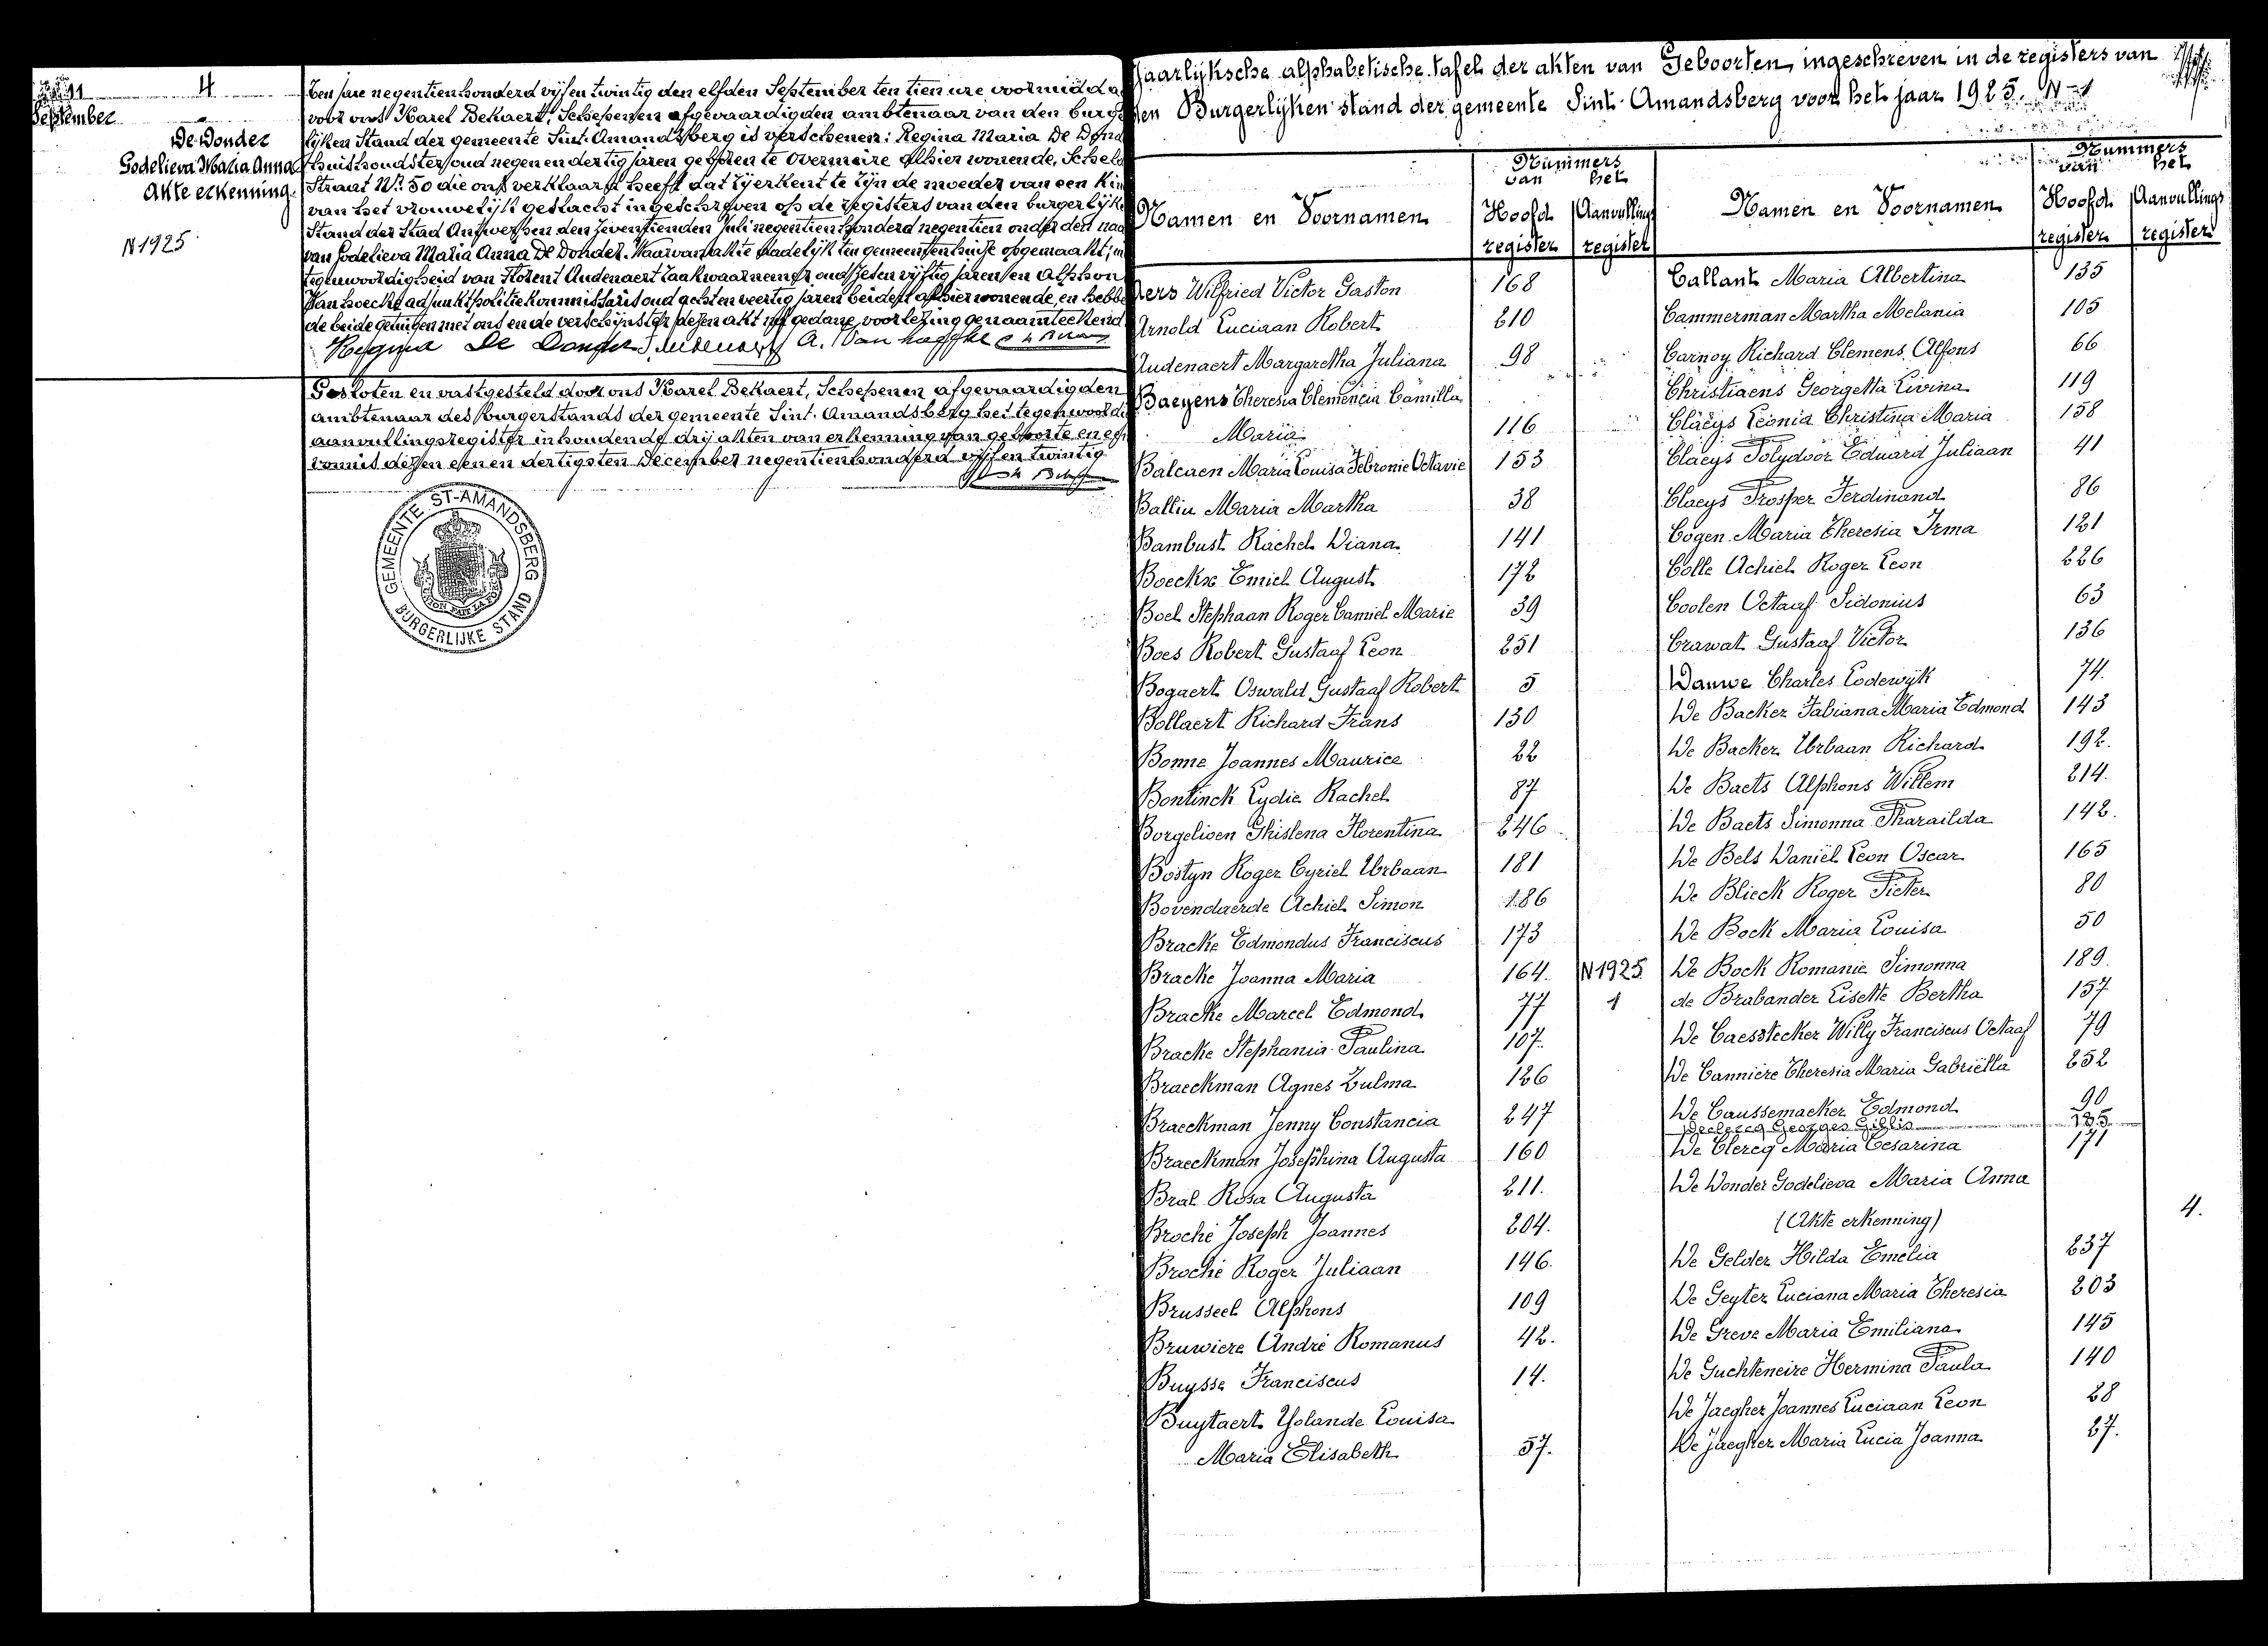 11 September
4
De Donder
Godelieva Maria Anna
Akte erkenning.
N 1925
Ten jare negentienhonderd vijf en twintig den elfden September ten tien ure voormidda
voor ons Karel Bekaert, Schepenen afgevaardigden ambtenaar van den burge
lijken Stand der gemeente Sint-Amandsberg is verschenen: Regina Maria De Dond
huishoudster oud negen en dertig jaren geboren te Overmeire alhier wonende, Schel
Straat Nr. 50 die ons verklaard heeft dat zij erkent te zijn de moeder van een Kin
van het vrouwelijk geslacht ingeschreven op de registers van den burgerlijke
Stand der Stad Antwerpen den zeventienden Juli negentienhonderd negentien onder den naa
van Godelieva Maria Anna De Donder. Waarvan akte dadelijk ten gemeentenhuise opgemaakt; in
tegenwoordigheid van Florent Audenaert zaakwaarnemer oud zesen vijftig jaren en Alphon
Van hoecke adjunkt politiekommissaris oud acht en veertig jaren beiden alhier wonende, en hebbe
de beide getuigen met ons en de verschijnster dezen akt na gedane voorlezing genaamteekend
Regina De Donder F. Audenaert A. Van hoecke
Gesloten en vastgesteld door ons Karel Bekaert, Schepenen afgevaardigden
ambtenaar des burgerstands der gemeente Sint-Amandsberg het tegenwoordi
aanvullingsregister inhoudende drij akten van erkenning van geboorte en
vonnis dezen een en dertigsten December negentienhonderd vijf en twintig
GEMEENTE ST-AMANDSBERG
BURGERLIJKE STAND
Jaarlijksche alphabetische tafel der akten van Geboorten, ingeschreven in de registers van
den Burgerlijken stand der gemeente Sint-Amandsberg voor het jaar 1925. N-1
Namen en Voornamen Nummers van het Hoofd register Aanvullings register
Aers Wilfried Victor Gaston 168
Arnold Luciaan Robert 210
Audenaert Margaretha Juliana 98
Baeyens Theresia Clemencia Camilla
Maria 116
Balcaen Maria Louisa Febronie Octavie 153
Balliu Maria Martha 38
Bambust Rachel Diana 141
Boeckx Emiel August 172
Boel Stephaan Roger Camiel Marie 39
Boes Robert Gustaaf Leon 251
Bogaert Oswald Gustaaf Robert 5
Bollaert Richard Frans 130
Bonne Joannes Maurice 22
Bontinck Lydie Rachel 87
Borgelioen Ghislena Florentina 246
Bostyn Roger Cyriel Urbaan 181
Bovendaerde Achiel Simon 186
Bracke Edmondus Franciscus 173
Bracke Joanna Maria 164. N 1925
Bracke Marcel Edmond 77 1
Bracke Stephania Paulina 107.
Braeckman Agnes Zulma 126
Braeckman Jenny Constancia 247
Braeckman Josephina Augusta 160
Bral Rosa Augusta 211.
Broché Joseph Joannes 204.
Broché Roger Juliaan 146.
Brusseel Alphons 109
Bruwiere André Romanus 42.
Buysse Franciscus 14.
Buytaert Yolande Louisa
Maria Elisabeth 57.
Namen en Voornamen Nummers van het Hoofd register Aanvullings register
Callant Maria Albertina 135
Cammerman Martha Melania 105
Carnoy Richard Clemens Alfons 66
Christiaens Georgetta Livina 119
Claeys Leonia Christina Maria 158
Claeys Polydoor Eduard Juliaan 41
Claeys Prosper Ferdinand 86
Cogen Maria Theresia Irma 121
Colle Achiel Roger Leon 226
Coolen Octaaf Sidonius 63
Crawat Gustaaf Victor 136
Dauwe Charles Lodewijk 74.
De Backer Fabiana Maria Edmond 143
De Backer Urbaan Richard 192.
De Baets Alphons Willem 214.
De Baets Simonna Pharailda 142.
De Bels Daniël Leon Oscar 165
De Blieck Roger Pieter 80
De Bock Maria Louisa 50
De Bock Romanie Simonna 189.
de Brabander Lisette Bertha 157
De Caesstecker Willy Franciscus Octaaf 79
De Cannière Theresia Maria Gabriëlla 252
De Caussemaeker Edmond 90
Declercq Georges Gillis 185
De Clercq Maria Cesarina 171
De Donder Godelieva Maria Anna
(Akte erkenning) 4.
De Gelder Hilda Emelia 237
De Geyter Luciana Maria Theresia 203
De Greve Maria Emiliana 145
De Guchteneire Hermina Paula 140
De Jaegher Joannes Luciaan Leon 28
De Jaegher Maria Lucia Joanna 27.